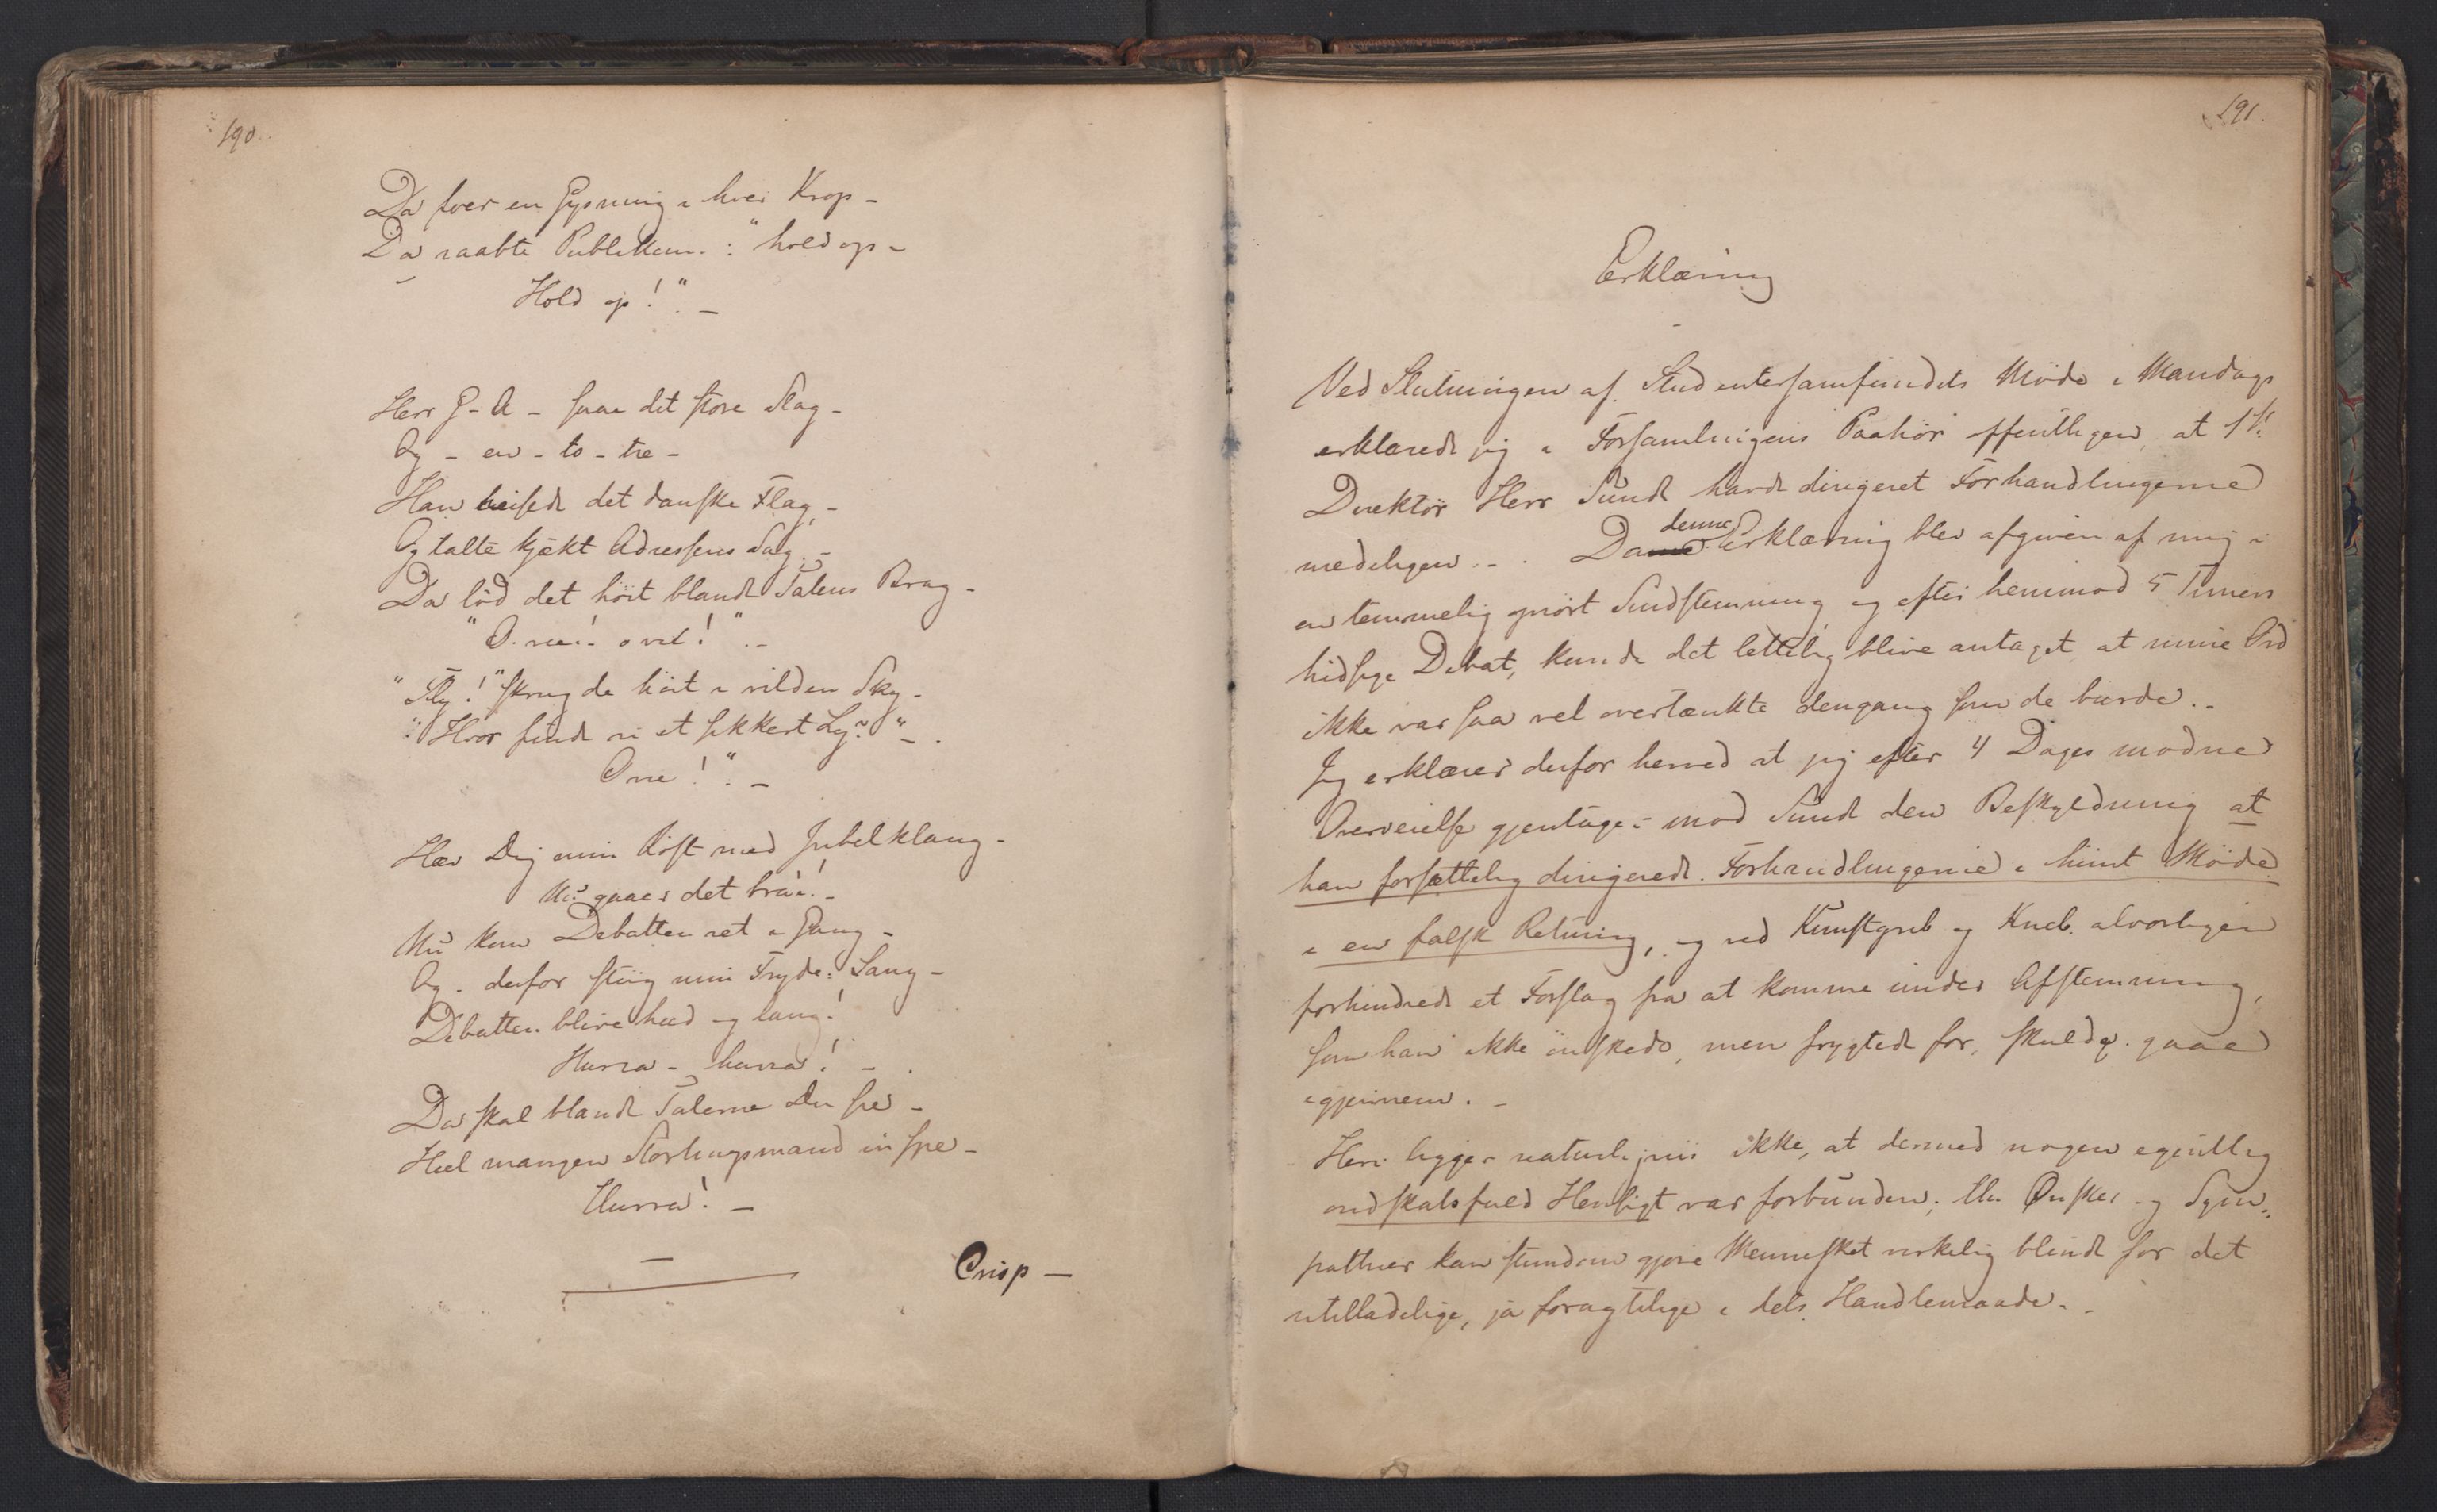 190.
Da foer en Gysning i hver Krop -
Da raabte Publikum: "hold op -
Hold op!" -
Herr G - A - saae det store Slag -
Og - en - to - tre -
Han heisede det danske Flag, -
Og talte kjækt Adressens Sag. -
Da lød det høit blandt Talens Brag -
"O vee! - o vee!" -
"Fly!" skreg de høit i vilden Sky -
"Hvor finde vi et sikkert Ly?" -
O vee!" -
Hæv Dig min Røst med Jubelklang -
Nu gaaer det bra! -
Nu kom Debatten ret i Gang -
Og derfor stiig min Fryde-Sang -
Debatten blive heed og lang!
Hurra - hurra! -
Da skal blandt Talerne Du see -
Heel mangen Storthingsmand in spe -
Hurra! -
Crisp -
191.
Erklæring
Ved Slutningen af Studentersamfundets Møde i Mandags
erklærede jeg i Forsamlingens Paahør offentligen, at
Direktør Herr Sundt havde dirigeret Forhandlingerne
nedeligen. - Da denne Erklæring blev afgiven af mig i
en temmelig oprørt Sindstemning og efter henimod 5 Timers
hidsige Debat, kunde det lettelig blive antaget, at mine Ord
ikke var saa vel overtænkte dengang som de burde. -
Jeg erklærer derfor herved at jeg efter 4 Dages modne
Overveielse gjentager mod Sundt den Beskyldning at
han forsættelig dirigerede Forhandlingerne i hiint Møde
i en falsk Retning, og ved Kunstgreb og Kneb alvorligen
forhindrede et Forslag fra at komme under Afstemning,
som han ikke ønskede, men frygtede for, skulde gaae
igjennem. -
Heri ligger naturligviis ikke, at dermed nogen egentlig
ondskabsfuld Hensigt var forbunden; thi Ønsker og Sym-
pathier kan stundom gjøre Mennesket virkelig blindt for det
utilladelige, ja foragtelige i dets Handlemaade. -